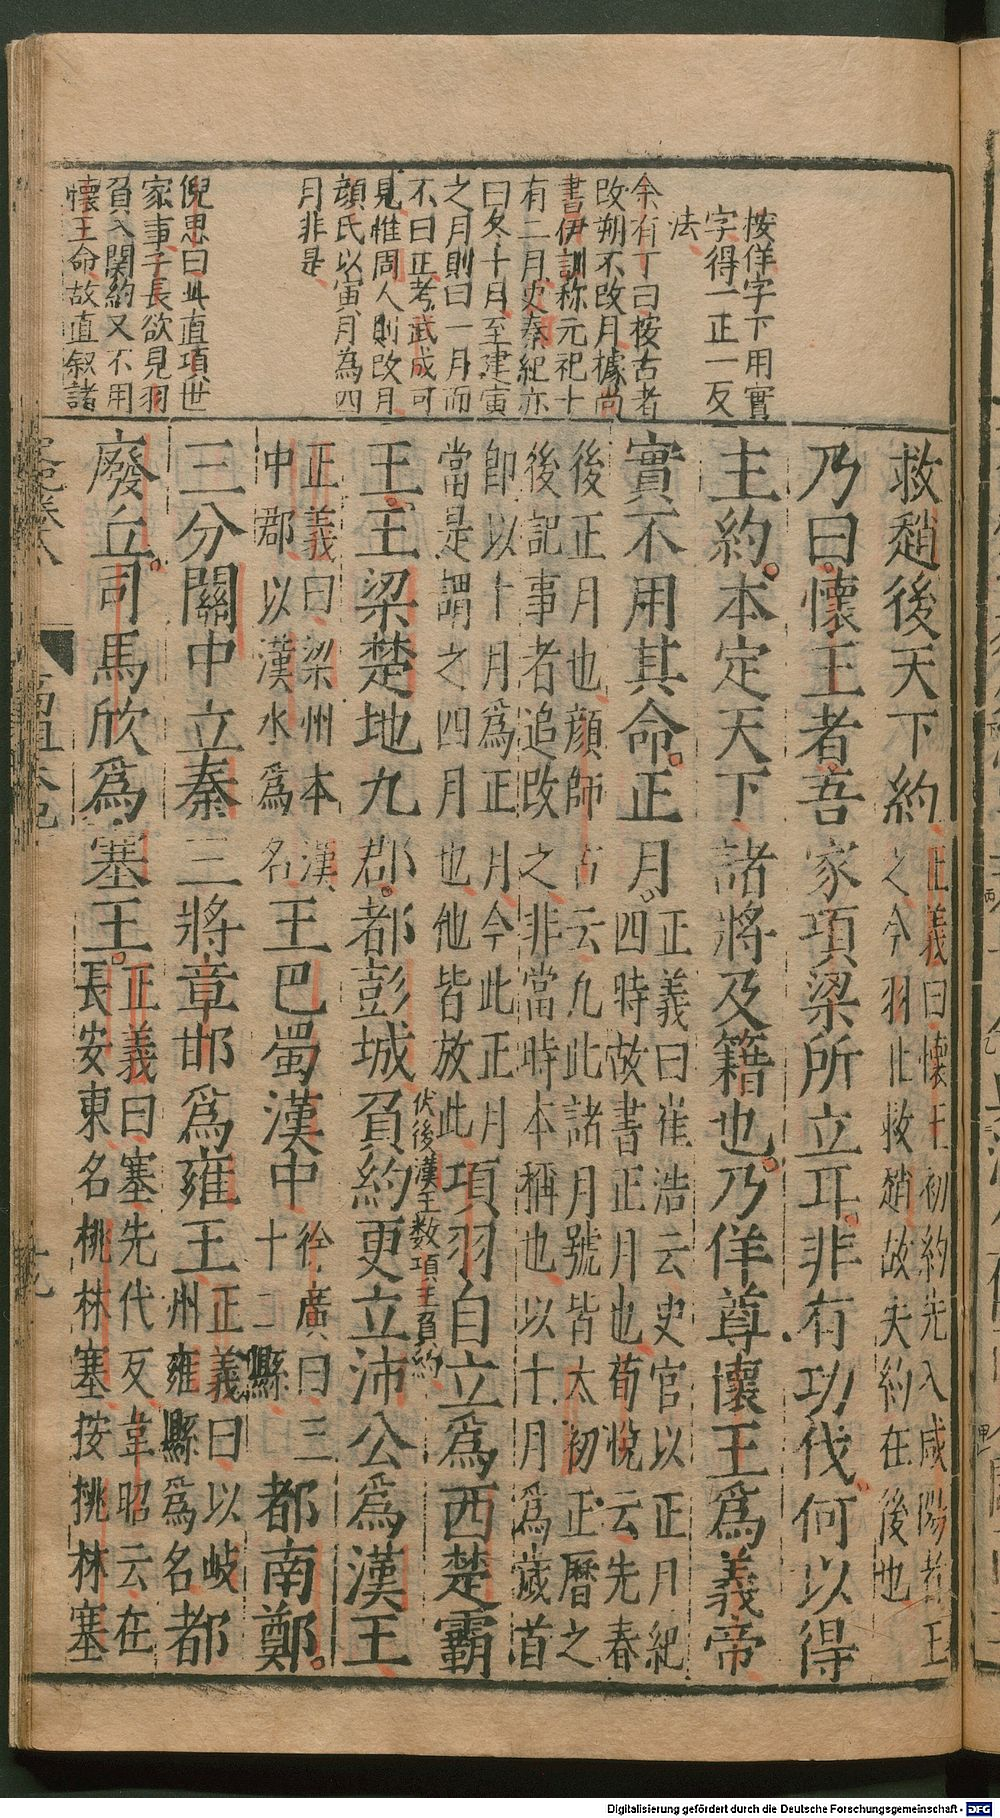 按佯字下用實
字得一正一反
法
余有丁曰按古者
改朔不改月據尚
書伊訓称元祀十
有二月史秦紀亦
曰冬十月至建寅
之月則曰一月而
不曰正考武成可
見惟周人則改月
顏氏以寅月為四
月非是
倪思曰此直項世
家事子長欲見羽
負入関約又不用
懷王命故直叙諸
救趙後天下約正義曰懷王初約先入咸陽者王
之今羽北救趙故失約在後也
乃曰懷王者吾家項梁所立耳非有功伐何以得
主約本定天下諸將及籍也乃佯尊懷王爲義帝
實不用其命正月正義曰崔浩云史官以正月紀
四時故書正月也荀悅云先春
後正月也顏師古云凡此諸月號皆太初正曆之
後記事者追改之非當時本稱也以十月爲歲首
卽以十月爲正月今此正月
當是謂之四月也他皆放此項羽自立爲西楚霸
伏後漢王数項王負約
王王梁楚地九郡都彭城負約更立沛公爲漢王
正義曰梁州本漢
中郡以漢水爲名王巴蜀漢中徐廣曰三
十二縣都南鄭
三分關中立秦三將章邯爲雍王正義曰以岐
州雍縣爲名都
廢丘司馬欣爲塞王正義曰塞先代反韋昭云在
長安東名桃林塞按桃林塞
高祖本紀
Digitalisierung gefördert durch die Deutsche Forschungsgemeinschaft - DFG